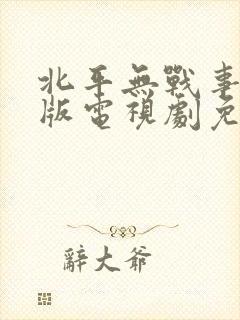 北平無戰事
版電視劇免
辭大爺